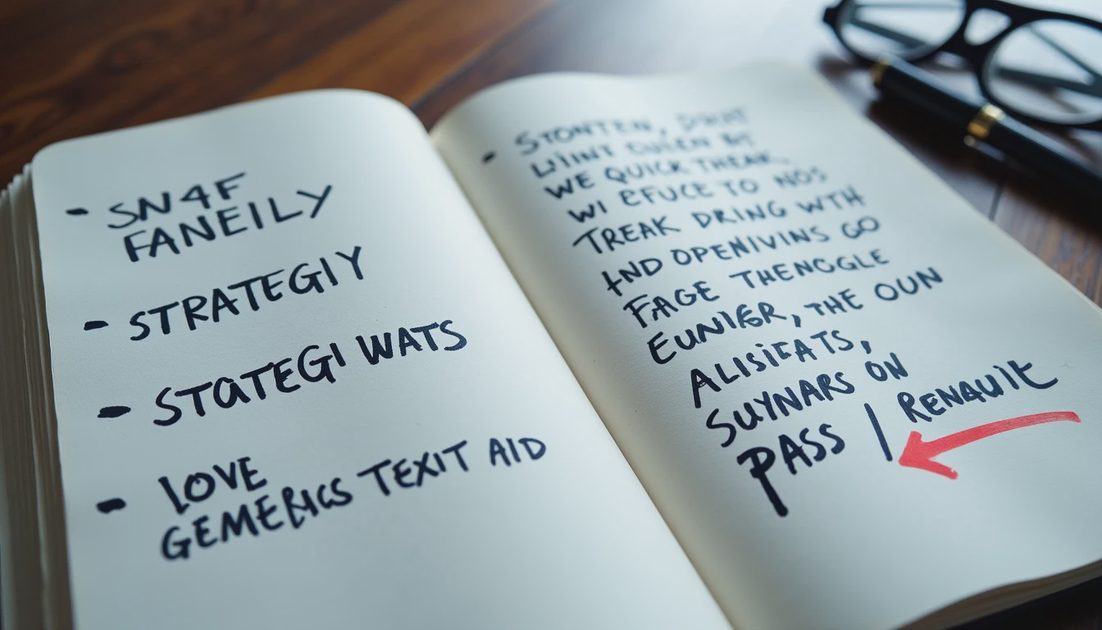 - SN4F
FANEILY
- STRATEGIY
- STATEGI WATS
- LOVE
GEMERICS TEXIT AID
- STONTEN,
BY
WE QUICK THEAK.
WI EFUCE TO NOS
TREAK DRING WTH
AND OPENIVINS GO
FAGE THENOGLE
EUNIGR, THE OUN
ALISIEATS,
SUYNARS ON
PASS | RENQUIT